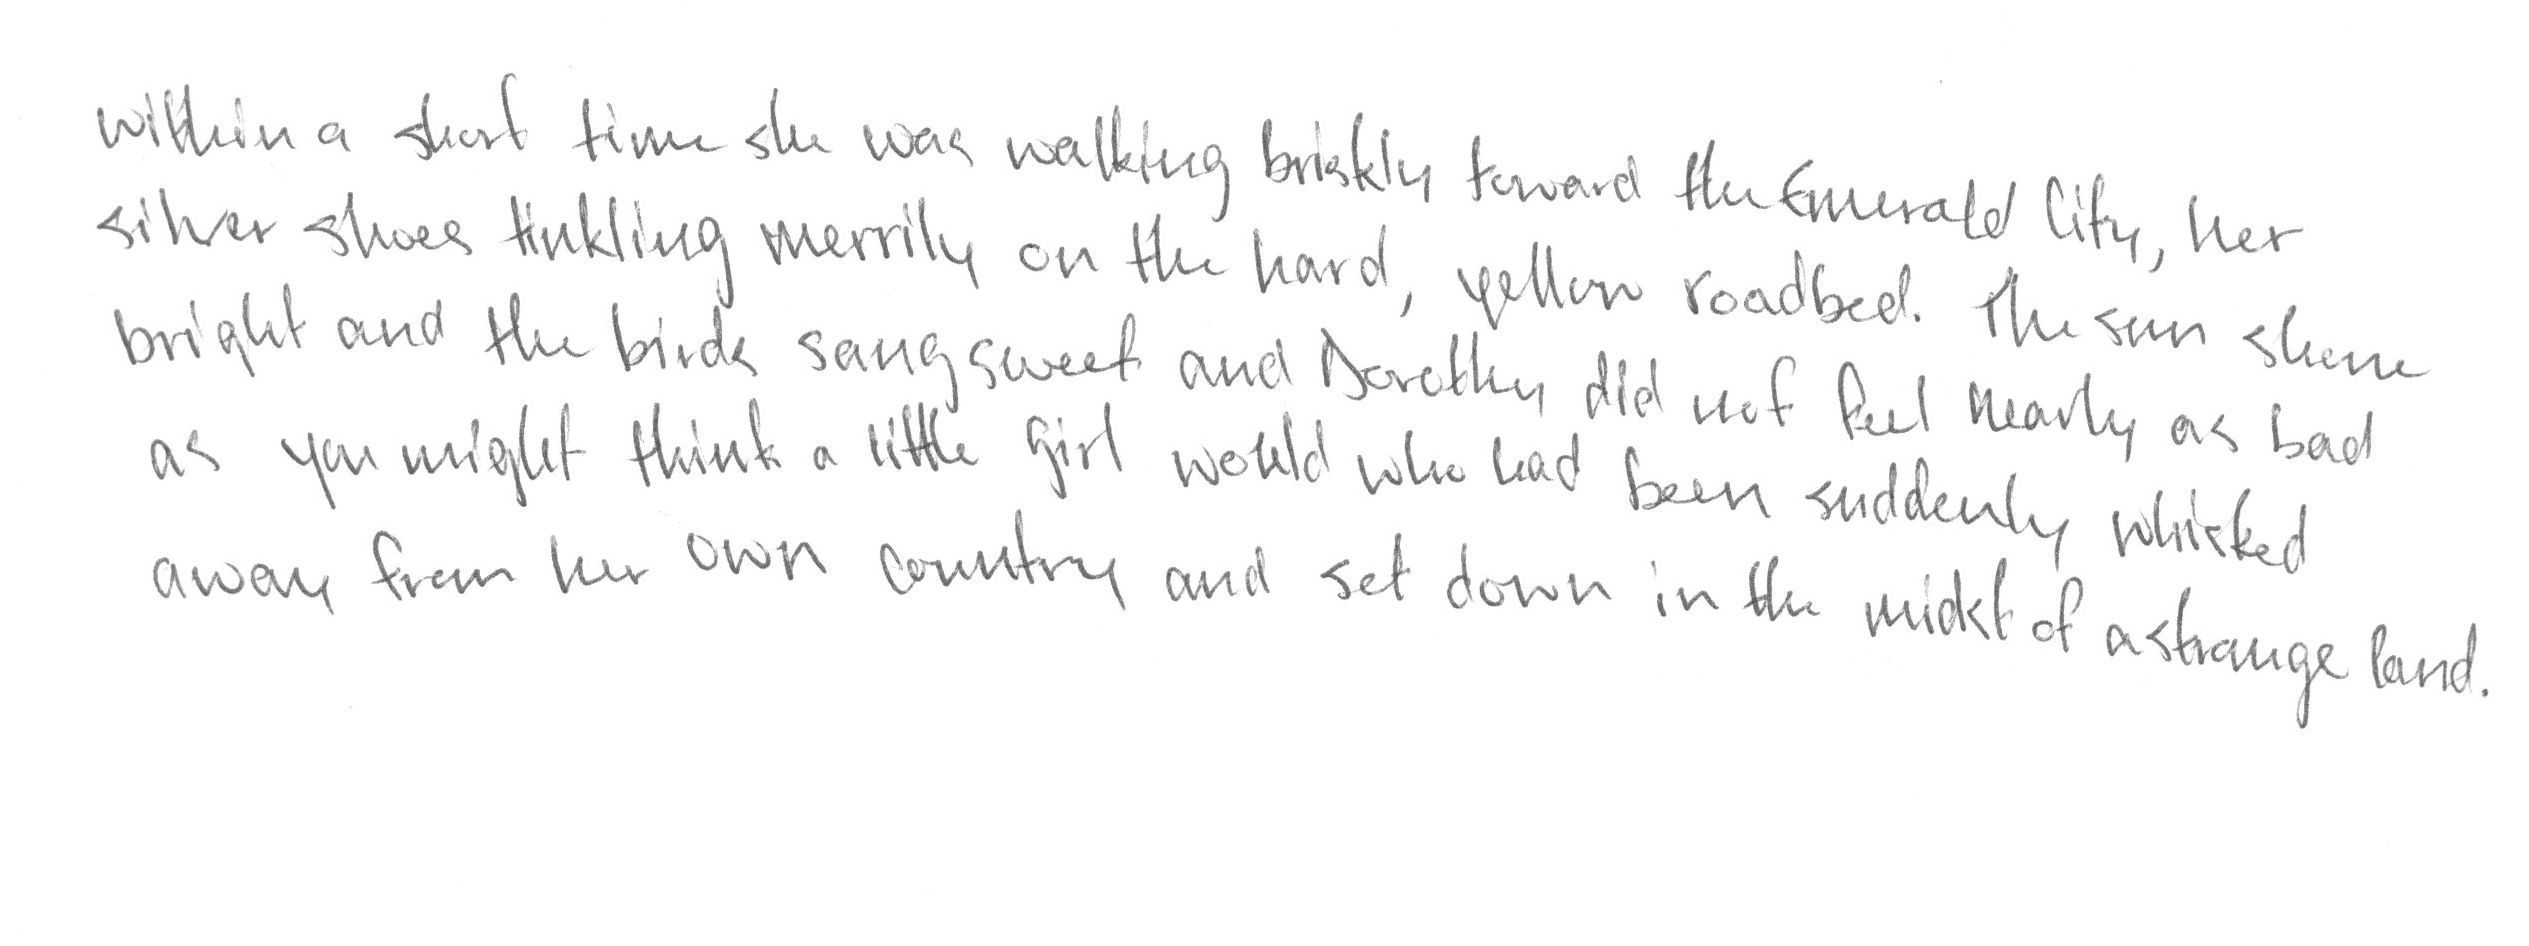 within a short time she was walking briskly toward the Emerald City, her
silver shoes tinkling merrily on the hard, yellow roadbed. The sun shone
bright and the birds sang sweet and Dorothy did not feel nearly as bad
as you might think a little girl would who had been suddenly whisked
away from her own country and set down in the midst of a strange land.